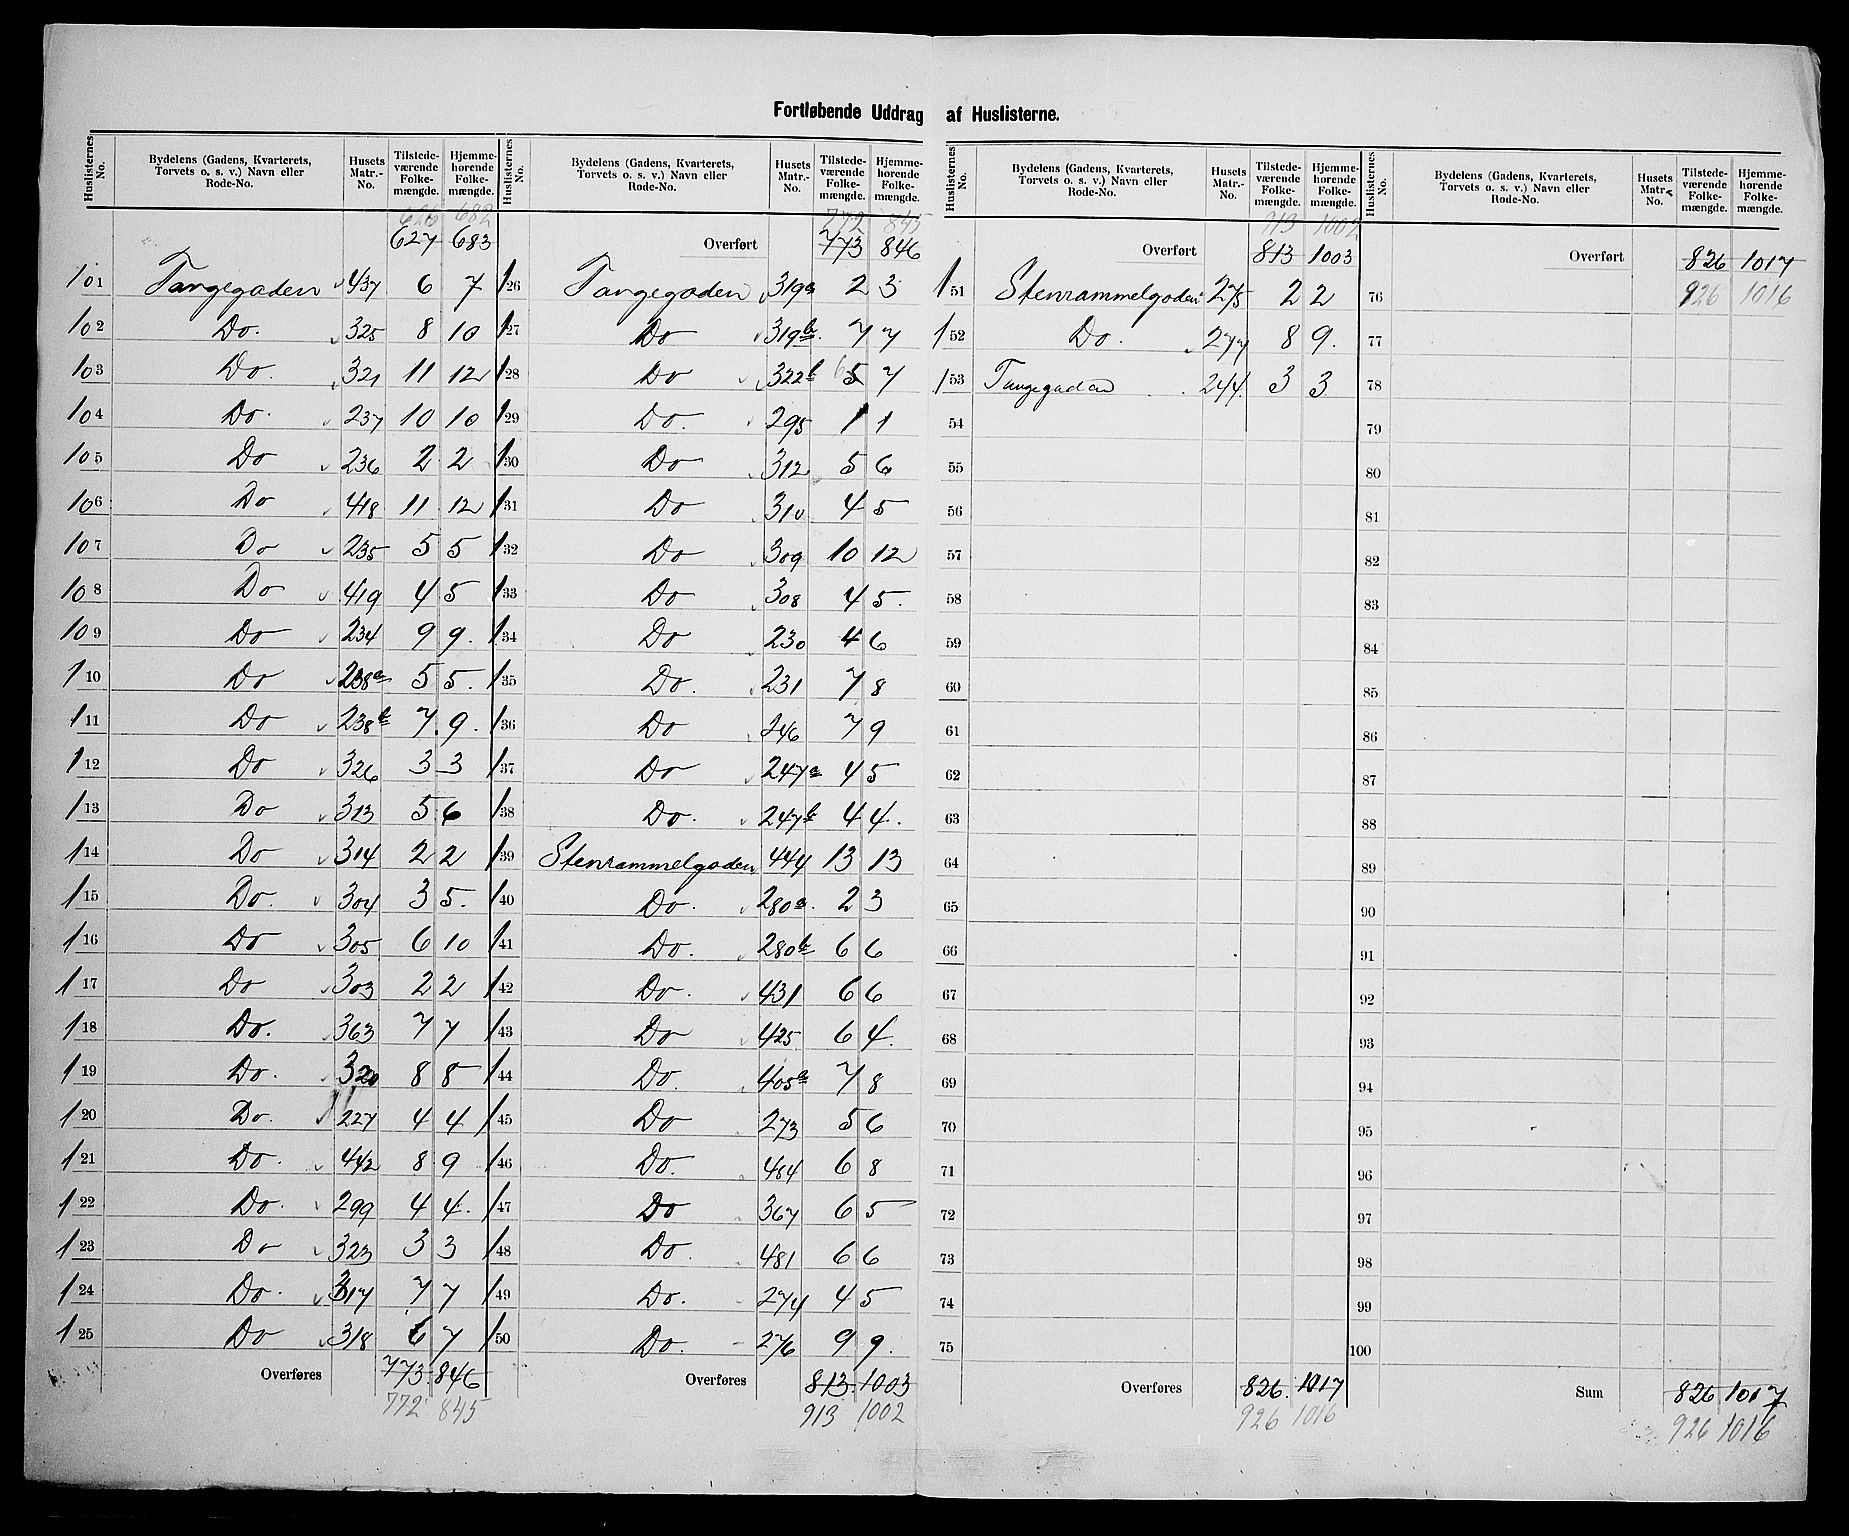 Fortløbende Uddrag af Huslisterne.
Huslisternes No. | Bydelens (Gadens, Kvarterets, Torvets o. s. v.) Navn eller Rode-No. | Husets Matr.-No. | Tilstedeværende Folkemængde. | Hjemmehørende Folkemængde.
626 682
627 683
101 Tangegaden 437 6 7
102 Do. 325 8 10
103 Do. 321 11 12
104 Do. 237 10 10
105 Do 236 2 2
106 Do 418 11 12
107 Do 235 5 5
108 Do 419 4 5
109 Do 234 9 9.
110 Do 238a 5 5.
111 Do 238b 7. 9.
112 Do 326 3 3
113 Do 313 5 6
114 Do 314 2 2
115 Do. 304 3 5.
116 Do 305 6 10
117 Do 303 2 2
118 Do. 363 7 7
119 Do. 320 8 8
120 Do. 227 4 4
121 Do. 442 8 9
122 Do. 299 4 4.
123 Do 323 3 3
124 Do. 317 7 7
125 Do 318 6 7
Overføres 773. 846
772 845
Huslisternes No. | Bydelens (Gadens, Kvarterets, Torvets o. s. v.) Navn eller Rode-No. | Husets Matr.-No. | Tilstedeværende Folkemængde. | Hjemmehørende Folkemængde.
772 845
Overført 773 846
126 Tangegaden 319a 2 3
127 Do 319b. 7 7
128 Do 322b 6 5 7
129 Do. 295 1 1
130 Do 312 5 6
131 Do 310 4 5
132 Do 309 10 12
133 Do 308 4 5.
134 Do 230 4 6
135 Do. 231 7 8
136 Do 246 7 9
137 Do 247a 4 5
138 Do. 247b 4 4.
139 Stenrammelgaden 444 13 13
140 Do. 280a. 2 3
141 Do. 280b 6 6
142 Do. 431 6 6
143 Do 425 6 4.
144 Do. 405a 7 8
145 Do 273 5 6
146 Do. 484 6 8
147 Do 367 6 5
148 Do. 481 6 6
149 Do. 274 4 5
150 Do. 276 9 9.
Overføres 813. 1003
913 1002
Huslisternes No. | Bydelens (Gadens, Kvarterets, Torvets o. s. v.) Navn eller Rode-No. | Husets Matr.-No. | Tilstedeværende Folkemængde. | Hjemmehørende Folkemængde.
913 1002
Overført 813 1003
151 Stenrammelgaden 275 2 2
152 Do. 277 8 9.
153 Tangegaden 244. 3 3
54
55
56
57
58
59
60
61
62
63
64
65
66
67
68
69
70
71
72
73
74
75
Overføres 826. 1017
926 1016
Huslisternes No. | Bydelens (Gadens, Kvarterets, Torvets o. s. v.) Navn eller Rode-No. | Husets Matr.-No. | Tilstedeværende Folkemængde. | Hjemmehørende Folkemængde.
Overført 826 1017
76 926 1016
77
78
79
80
81
82
83
84
85
86
87
88
89
90
91
92
93
94
95
96
97
98
99
100
Sum 826 1017
926 1016